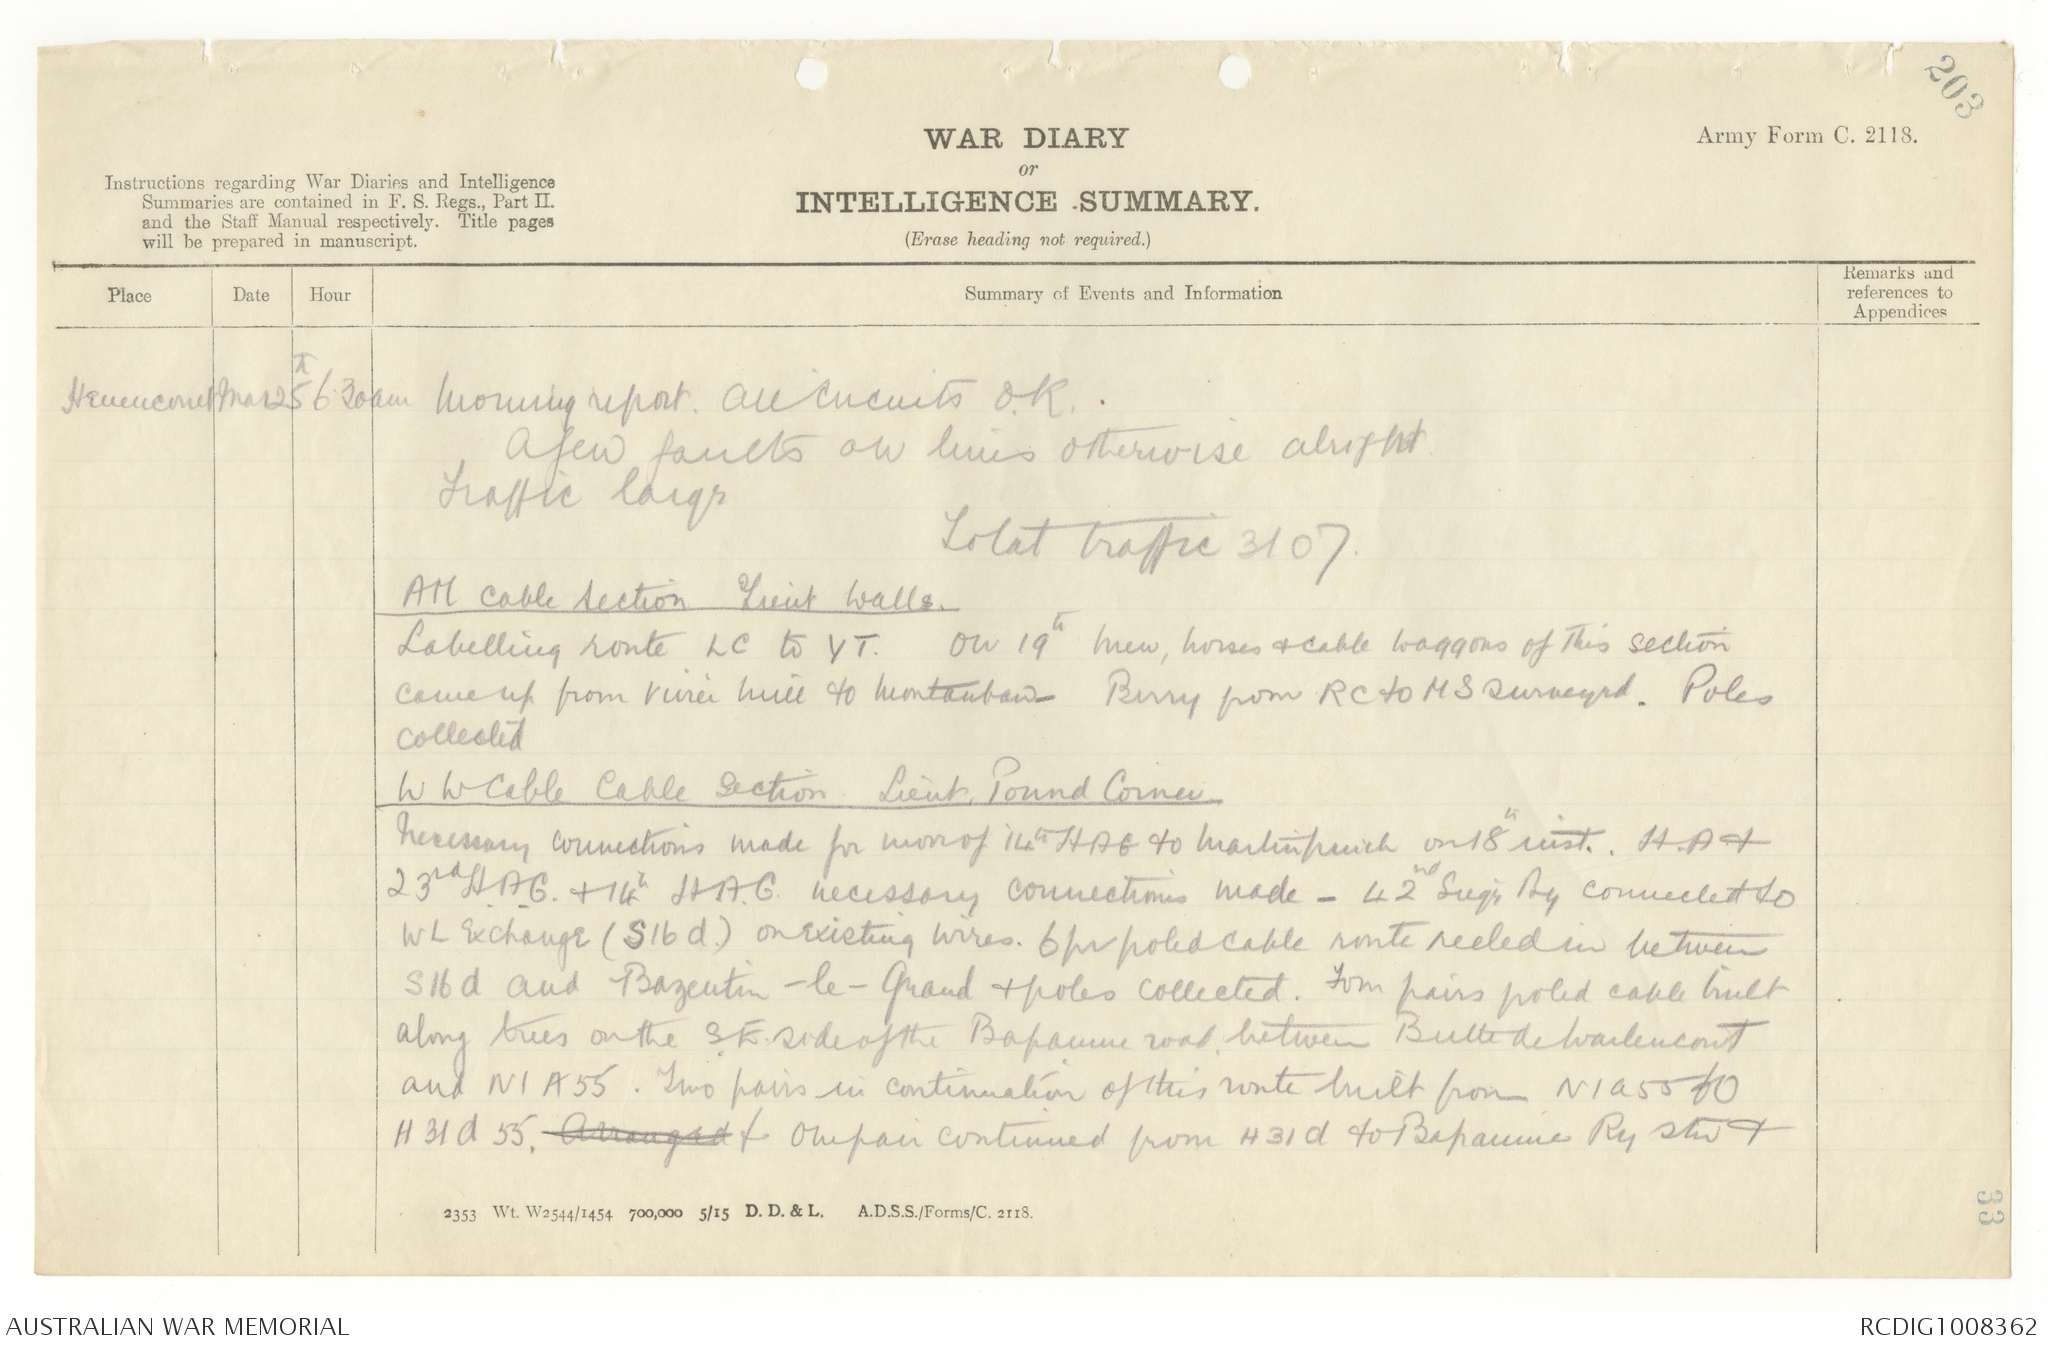 203
WAR DIARY
or
INTELLIGENCE SUMMARY.
(Erase heading not required.)
Army Form C. 2118.
Instructions regarding War Diaries and Intelligence
Summaries are contained in F. S. Regs., Part II.
and the Staff Manual respectively. Title pages
will be prepared in manuscript.
Place
Date
Hour
Summary of Events and Information
Remarks and
references to
Appendices
Henencourt Mar 25th 6.30am Morning report. All Circuits O.K.
A few faults on lines otherwise alright
Traffic large
Total traffic 3107.
AM Cable Section Lieut Walls.
Labelling route LC to YT. On 19th men, horses & cable waggons of this section
came up from Vivier Mill to Montauban Bury from RC to MS surveyed. Poles
collected
WW Cable Cable Section Lieut. Pound Corner
Necessary connections made for move of 14th HAG to Martinpuich on 18th inst. HA &
23rd H.A.G. & 14th H.A.G. necessary connections made - 42nd Siege By connected to
WL Exchange (S16d.) on existing wires. 6 pr poled cable route reeled in between
S16d and Bazentin-le-Grand & poles collected. Four pairs poled cable built
along trees on the S.E. side of the Bapaume road between Butte de Warlencourt
and N1A55. Two pairs in continuation of this route built from N1a55 to
H31d 55. Arranged & One pair continued from H31d to Bapaume Ry stn &
2353 Wt. W2544/1454 700,000 5/15 D. D. & L. A.D.S.S./Forms/C. 2118.
33
AUSTRALIAN WAR MEMORIAL
RCDIG1008362